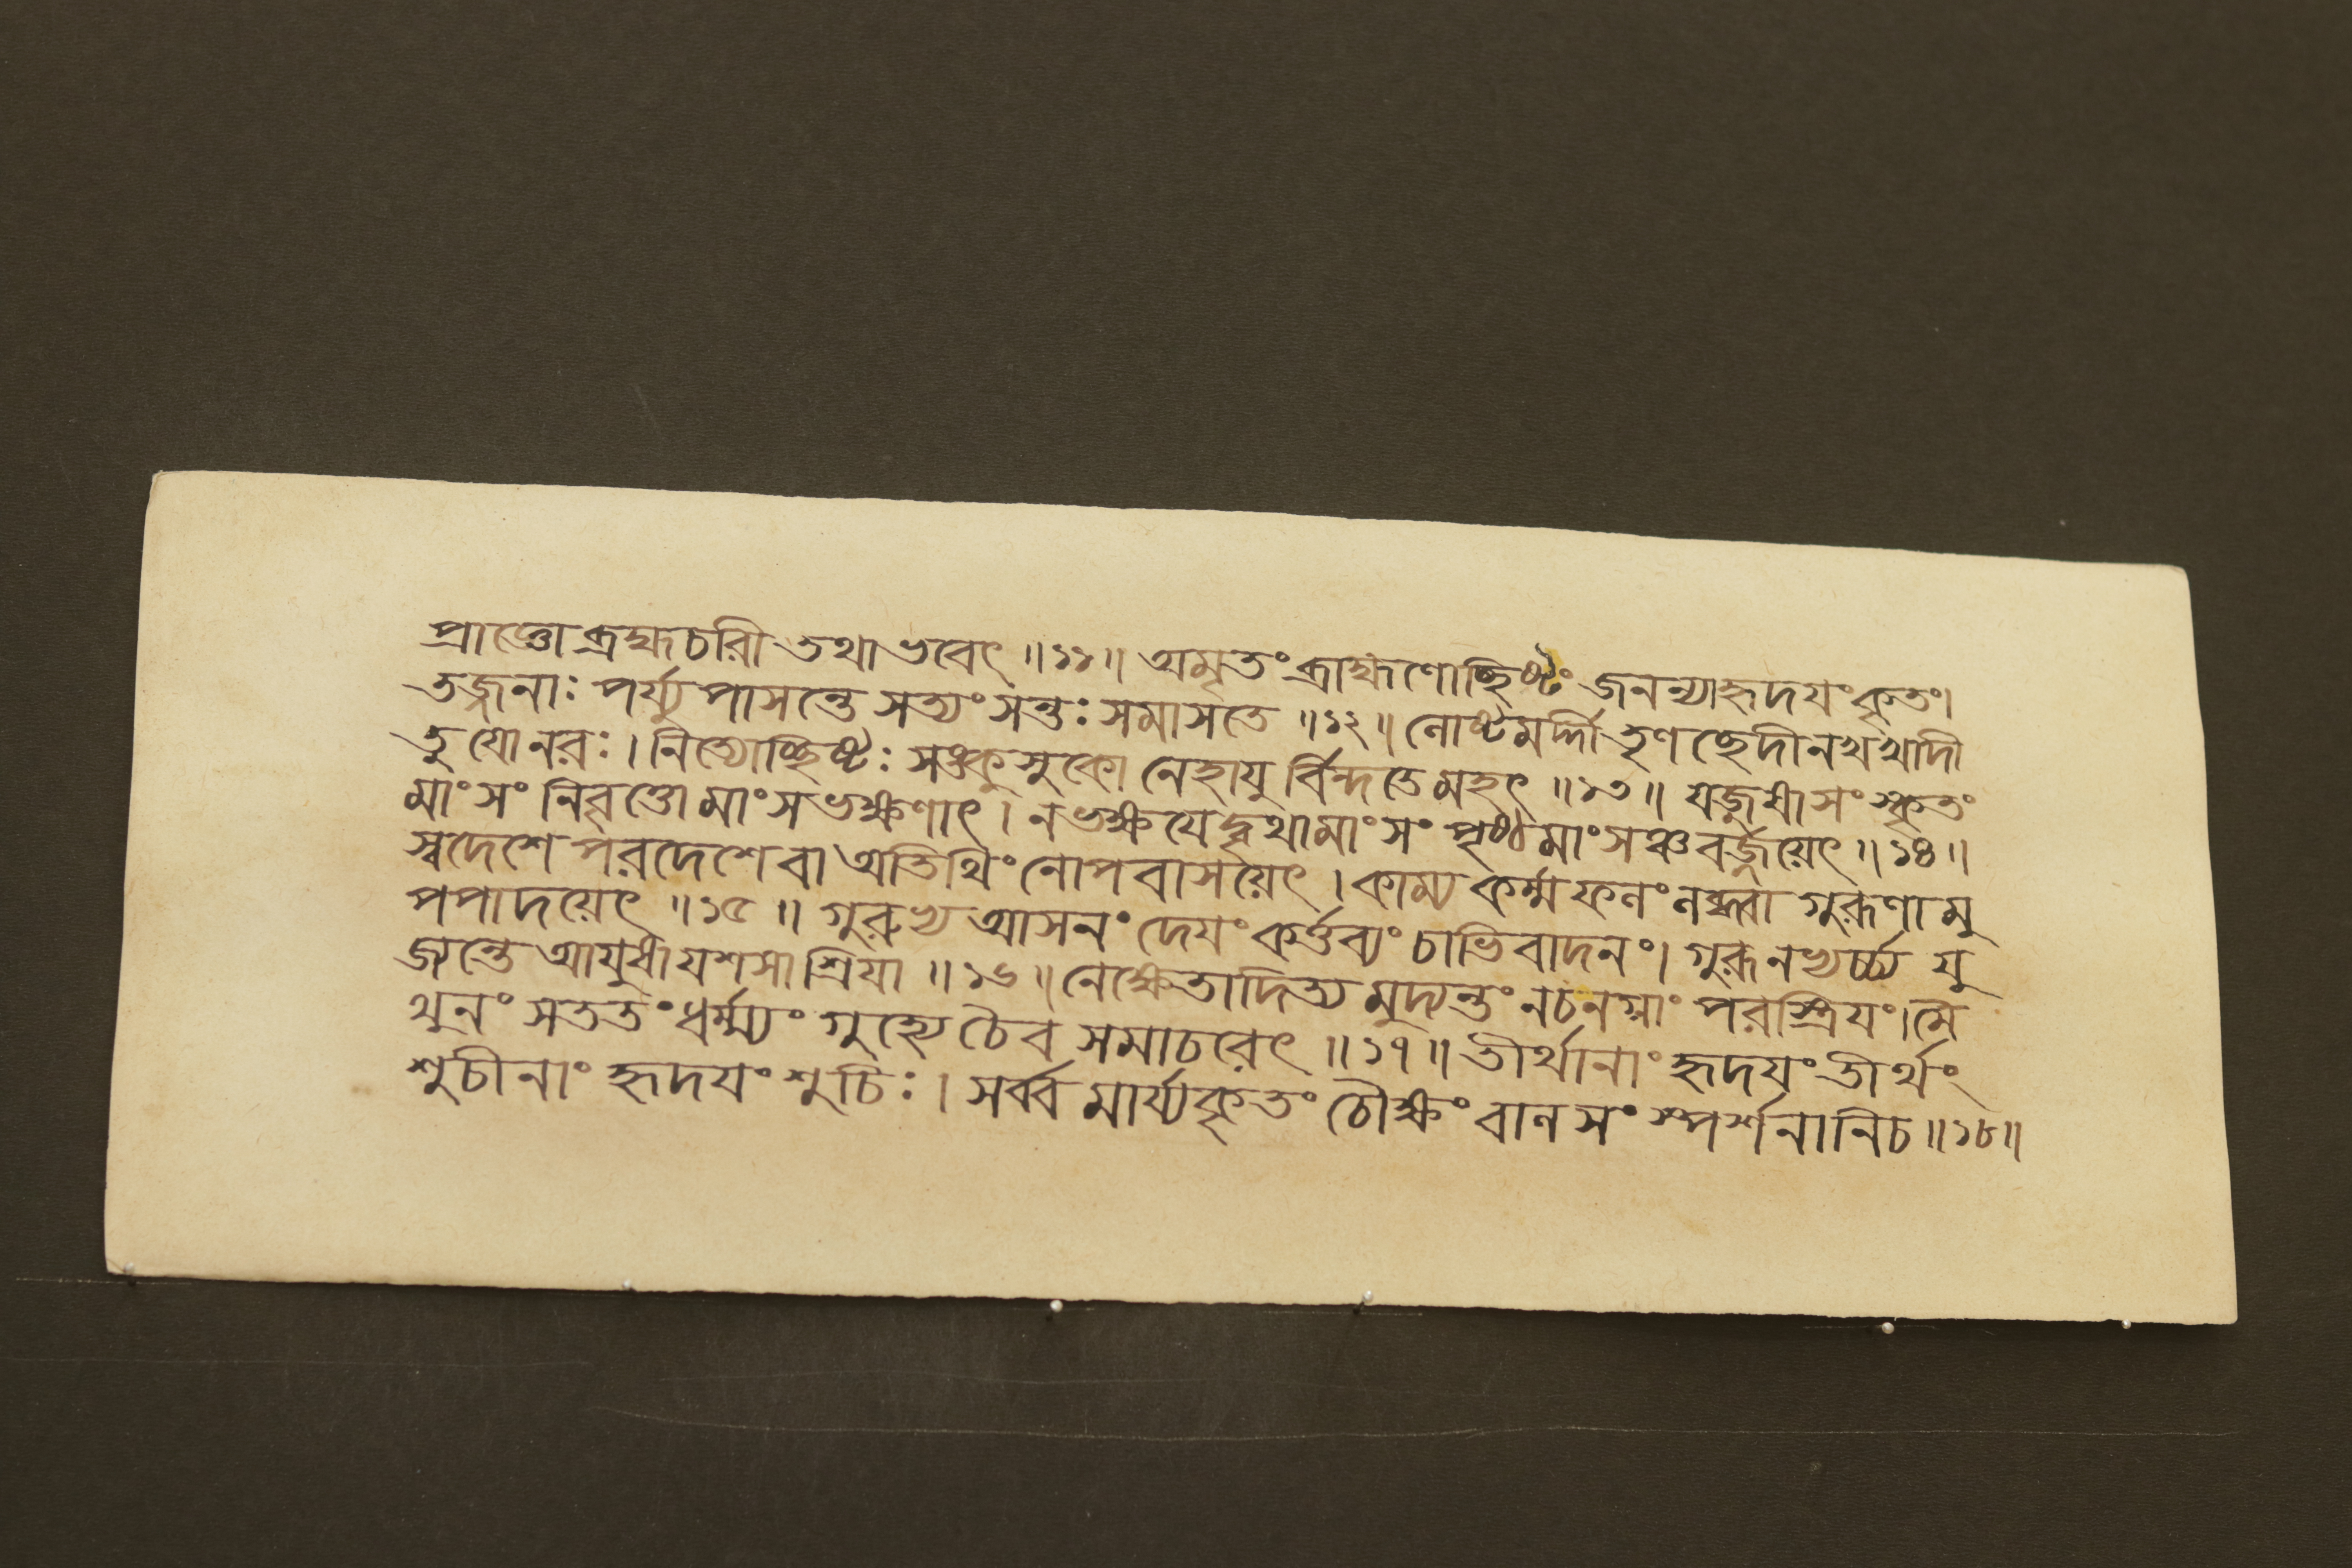 প্রাজ্ঞো ব্রহ্মচরী তথা ভবেৎ ॥১১॥ অমৃতং ব্রাহ্মণোচ্ছিষ্টং জনন্যাহৃদয়ং কৃতং।
তজ্জনাঃ পর্য্যুপাসন্তে সত্যং সন্তঃ সমাসতে ॥১২॥ লোষ্টমর্দ্দী তৃণচ্ছেদী নখখাদী
তু যো নরঃ। নিত্যোচ্ছিষ্টঃ সঙ্কুসুকো নেহাযুর্বিন্দতে মহৎ ॥১৩॥ যজুষা সংস্কৃতং
মাংসং নিবৃত্তো মাংসভক্ষণাৎ। ন ভক্ষযেদ্বৃথামাংসং পৃষ্ঠমাংসঞ্চ বর্জ্জয়েৎ॥১৪॥
স্বদেশে পরদেশে বা অতিথিং নোপবাসয়েৎ। কাম্য কর্ম্মফলং লব্ধ্বা গুরূণামু
পপাদয়েৎ ॥১৫॥ গুরুভ্য আসনং দেযং কর্ত্তব্যং চাভিবাদনং। গুরূনভ্যর্চ্চ্য যু
জ্যন্তে আযুষা যশসা শ্রিযা ॥১৬॥ নেক্ষেতাদিত্যমুদ্যন্তং ন চ নগ্নাং পরস্ত্রিযং।মৈ
থুনং সততং ধর্ম্ম্যং গুহ্যে চৈব সমাচরেৎ ॥১৭॥ তীর্থানাং হৃদযং তীর্থং
শুচীনাং হৃদযং শুচিঃ। সর্ব্বমার্য্যকৃতং চৌক্ষং বালসংস্পর্শনানি চ॥১৮॥